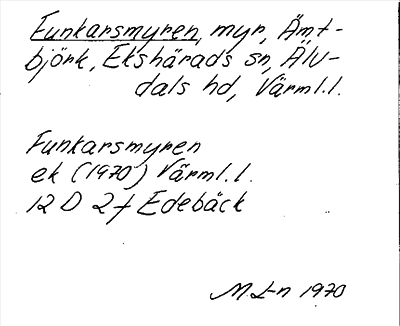 Funkarsmyren, myr, Ämt-
björk, Ekshärads sn, Älv-
dals hd, Värml.l.
Funkarsmyren
ek (1970) Värml.l.
12 D 2f Edebäck
M.L-n 1970